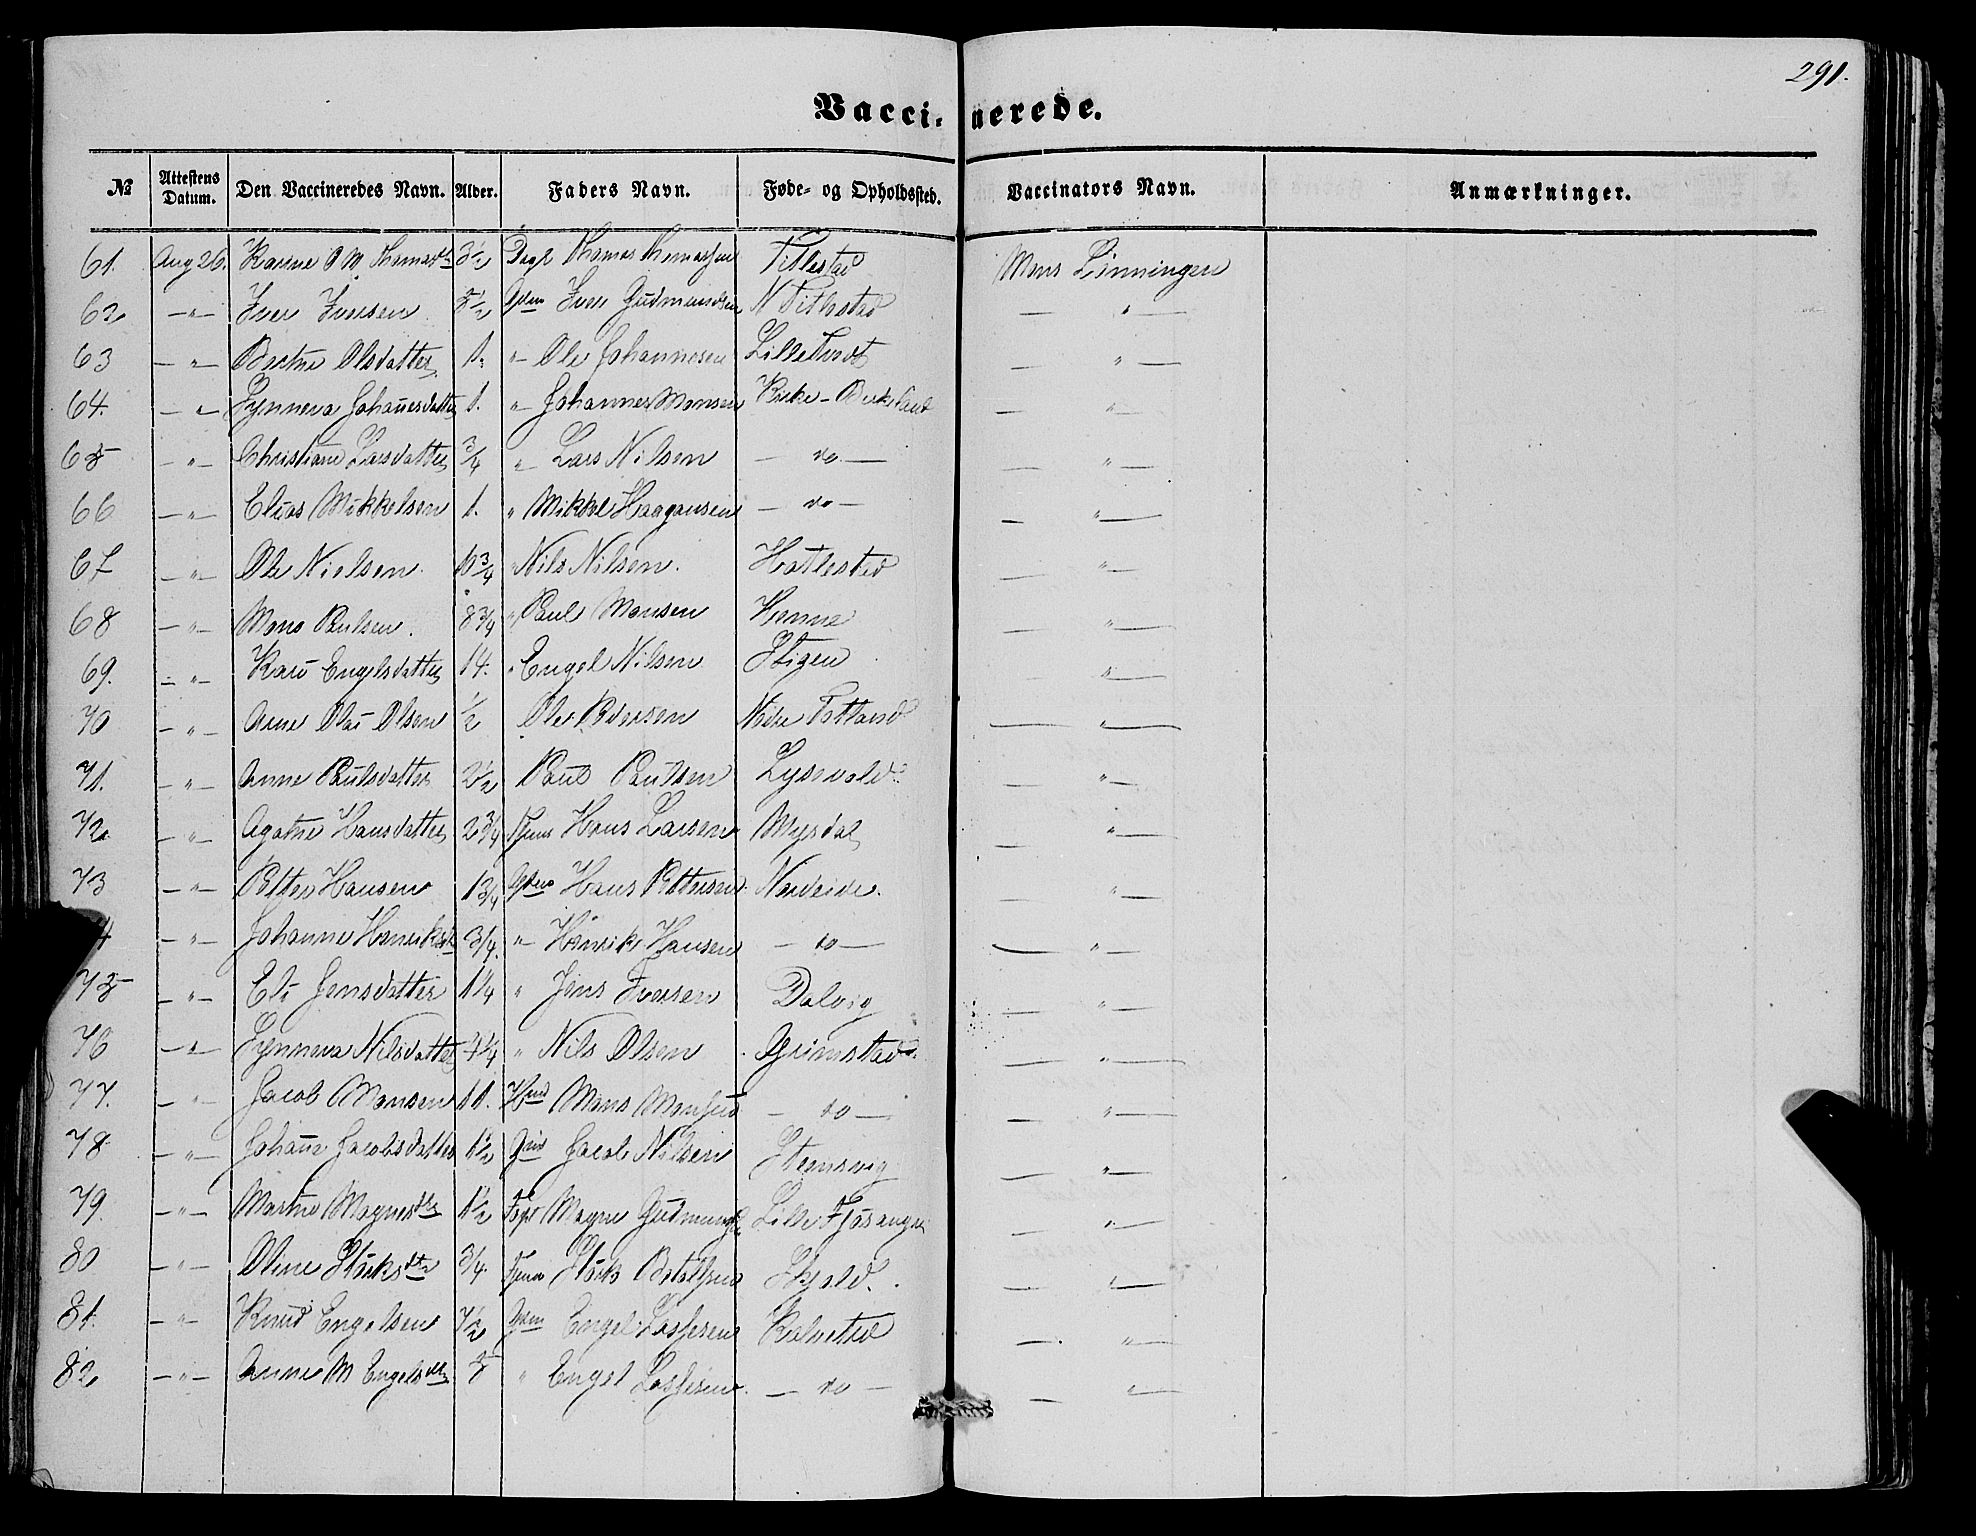 291.
Vaccinerede.
№ Attestens Datum. Den Vaccineredes Navn. Alder. Faders Navn. Føde- og Opholdssted. Vaccinators Navn. Anmærkninger.
61. Aug 26. Karine O M Thomasd 3½ Thomas Thomassen Titlestad Mons Lønningen
62 — " — Iver Iversen Gdm Iver Gudmundsen N Titlestad — " —
63 — " — Olsdatter 1. " Ole Johannesen Lille — " —
64. — " — Synneva Johanesdatter 1. " Johannes Monsen Kirke-Birkeland — " —
65 — " — Christiane Larsdatter ¾ " Lars Nilsen — do — — " —
66 — " — Elias Mikkelsen 1. " Mikkel Haagansen — do — — " —
67 — " — Ole Nielsen 10¾ " Nils Nilsen. Hatlestad — " —
68 — " — Mons Paulsen. 8¾ " Paul Monsen — " —
69. — " — Kari Engelsdatter 14. " Engel Nilsen Stigen — " —
70 — " — Arne Olai Olsen ½ Ole Pedersen Nedre Totland — " —
71. — " — Anne Paulsdatter 2½ Paul Paulsen Lysevold — " —
72. — " — Agathe Hansdatter 2¾ Hans Larsen Myrdal — " —
73 — " — Petter Hansen 1¾ Gdm Hans Pettersen Nordeide. — " —
— " — Johanne ¾. " Henrik Hansen — do — — " —
75 — " — Eli Jensdatter 1¼ " Jens Iversen Dalvig — " —
76 — " — Synneva Nilsdatter " Nils Olsen Grimstad — " —
77. — " — Jacob Monsen 11. Hmd Mons Monsen — do — — " —
78 — " — Johane Jacobsdatter 1½ Gm Jacob Nilsen Stemsvig — " —
79. — " — Magnesdtr 1½ Magne Lille Fjøsanger — " —
80 — " — Oline Størksdtr ¾. Størk Botolfsen Skjold. — " —
81. — " — Knud Engelsen 7½ Gdm Engel Lassesen Kalvetræ — " —
82 — " — Anne M Engelsdtr " Engel Lassesen — do — — " —